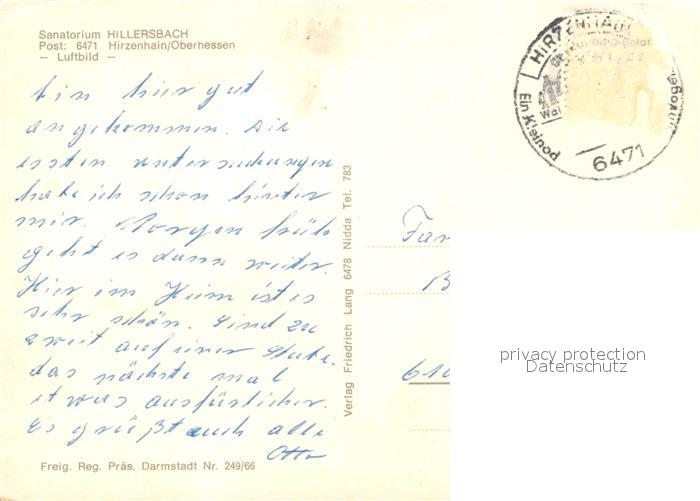 Sanatorium HILLERSBACH
Post: 6471 Hirzenhain/Oberhessen
— Luftbild —
bin hier gut
angekommen. Die
ersten untersuchungen
habe ich schon hinter
mir. Morgen früh
geht es dann weiter.
Hier im Heim ist es
sehr schön. Sind zu
zweit auf einer Stube.
das nächste mal
etwas ausfürlicher.
Es grüßt euch alle
Otto
Freig. Reg. Präs. Darmstadt Nr. 249/66
Verlag Friedrich Lang 6478 Nidda Tel. 783
HIRZENHAIN
Ein Kleinod
6471
Fam
610
privacy protection
Datenschutz